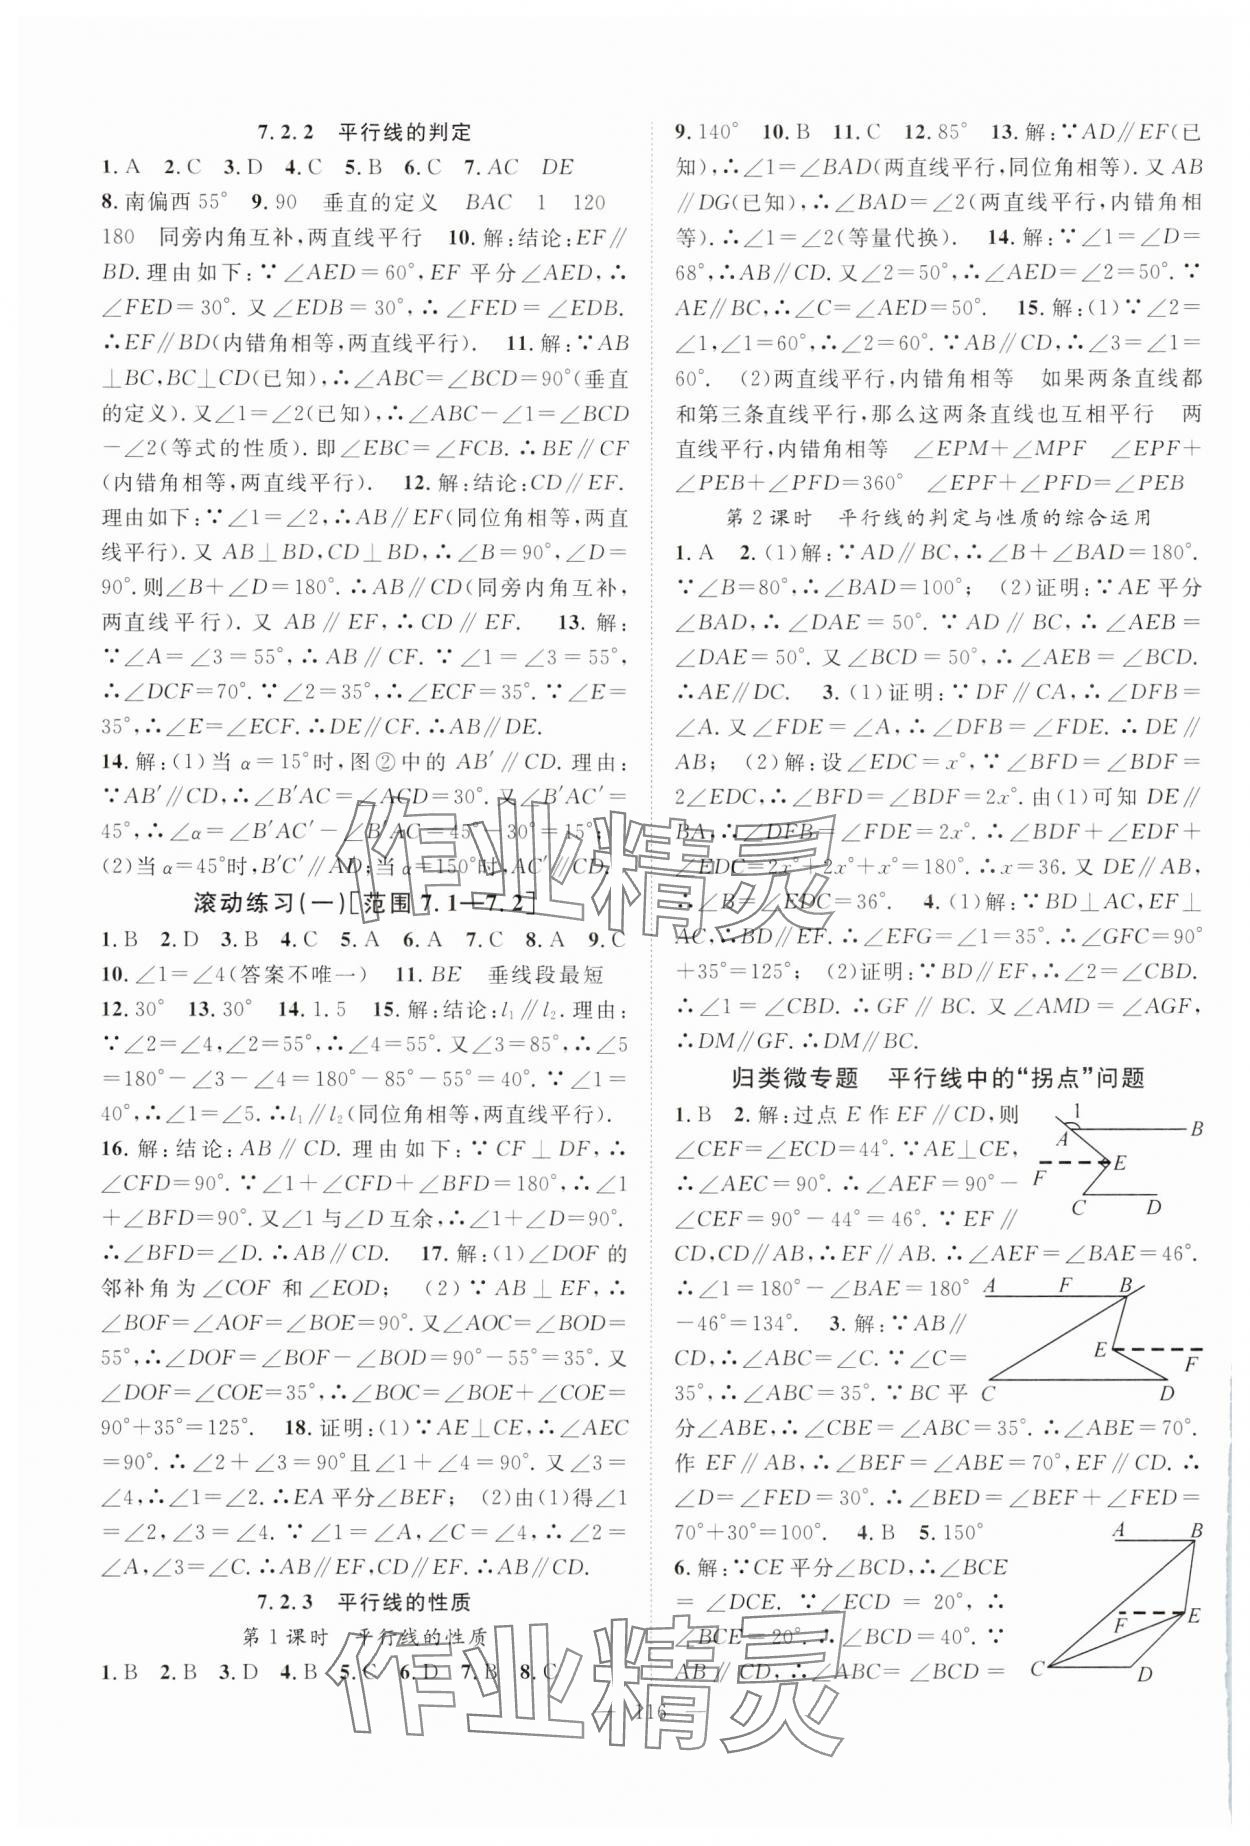 7.2.2　平行线的判定
1.A　2.C　3.D　4.C　5.B　6.C　7.AC　DE
8.南偏西55°　9.90　垂直的定义　BAC　1　120
180　同旁内角互补,两直线平行　10.解:结论:EF∥
BD.理由如下:∵∠AED=60°,EF平分∠AED,∴
∠FED=30°.又∠EDB=30°,∴∠FED=∠EDB.
∴EF∥BD(内错角相等,两直线平行).　11.解:∵AB
⊥BC,BC⊥CD(已知),∴∠ABC=∠BCD=90°(垂直
的定义).又∠1=∠2(已知),∴∠ABC-∠1=∠BCD
-∠2(等式的性质).即∠EBC=∠FCB.∴BE∥CF
(内错角相等,两直线平行).　12.解:结论:CD∥EF.
理由如下:∵∠1=∠2,∴AB∥EF(同位角相等,两直
线平行).又AB⊥BD,CD⊥BD,∴∠B=90°,∠D=
90°.则∠B+∠D=180°.∴AB∥CD(同旁内角互补,
两直线平行).又AB∥EF,∴CD∥EF.　13.解:
∵∠A=∠3=55°,∴AB∥CF.∵∠1=∠3=55°,
∴∠DCF=70°.∵∠2=35°,∴∠ECF=35°.∵∠E=
35°,∴∠E=∠ECF.∴DE∥CF.∴AB∥DE.
14.解:(1)当α=15°时,图②中的AB′∥CD.理由:
∵AB′∥CD,∴∠B′AC=∠ACD=30°.又∠B′AC′=
45°,∴∠α=∠B′AC′-∠B′AC=45°-30°=15°;
(2)当α=45°时,B′C′∥AD;当α=150°时,AC′∥CD.
滚动练习(一)[范围7.1—7.2]
1.B　2.D　3.B　4.C　5.A　6.A　7.C　8.A　9.C
10.∠1=∠4(答案不唯一)　11.BE　垂线段最短
12.30°　13.30°　14.1.5　15.解:结论:l₁∥l₂.理由:
∵∠2=∠4,∠2=55°,∴∠4=55°.又∠3=85°,∴∠5
=180°-∠3-∠4=180°-85°-55°=40°.∵∠1=
40°,∴∠1=∠5.∴l₁∥l₂(同位角相等,两直线平行).
16.解:结论:AB∥CD.理由如下:∵CF⊥DF,∴
∠CFD=90°.∵∠1+∠CFD+∠BFD=180°,∴∠1
+∠BFD=90°.又∠1与∠D互余,∴∠1+∠D=90°.
∴∠BFD=∠D.∴AB∥CD.　17.解:(1)∠DOF的
邻补角为∠COF和∠EOD;　(2)∵AB⊥EF,∴
∠BOF=∠AOF=∠BOE=90°.又∠AOC=∠BOD=
55°,∴∠DOF=∠BOF-∠BOD=90°-55°=35°.又
∠DOF=∠COE=35°,∴∠BOC=∠BOE+∠COE=
90°+35°=125°.　18.证明:(1)∵AE⊥CE,∴∠AEC
=90°.∴∠2+∠3=90°且∠1+∠4=90°.又∠3=
∠4,∴∠1=∠2.∴EA平分∠BEF;　(2)由(1)得∠1
=∠2,∠3=∠4.∵∠1=∠A,∠C=∠4,∴∠2=
∠A,∠3=∠C.∴AB∥EF,CD∥EF.∴AB∥CD.
7.2.3　平行线的性质
第1课时　平行线的性质
1.B　2.B　3.D　4.B　5.C　6.D　7.B　8.C
9.140°　10.B　11.C　12.85°　13.解:∵AD∥EF(已
知),∴∠1=∠BAD(两直线平行,同位角相等).又AB
∥DG(已知),∴∠BAD=∠2(两直线平行,内错角相
等).∴∠1=∠2(等量代换).　14.解:∵∠1=∠D=
68°,∴AB∥CD.又∠2=50°,∴∠AED=∠2=50°.∵
AE∥BC,∴∠C=∠AED=50°.　15.解:(1)∵∠2=
∠1,∠1=60°,∴∠2=60°.∵AB∥CD,∴∠3=∠1=
60°.　(2)两直线平行,内错角相等　如果两条直线都
和第三条直线平行,那么这两条直线也互相平行　两
直线平行,内错角相等　∠EPM+∠MPF　∠EPF+
∠PEB+∠PFD=360°　∠EPF+∠PFD=∠PEB
第2课时　平行线的判定与性质的综合运用
1.A　2.(1)解:∵AD∥BC,∴∠B+∠BAD=180°.
∵∠B=80°,∴∠BAD=100°;　(2)证明:∵AE平分
∠BAD,∴∠DAE=50°.∵AD∥BC,∴∠AEB=
∠DAE=50°.又∠BCD=50°,∴∠AEB=∠BCD.
∴AE∥DC.　3.(1)证明:∵DF∥CA,∴∠DFB=
∠A.又∠FDE=∠A,∴∠DFB=∠FDE.∴DE∥
AB;　(2)解:设∠EDC=x°,∵∠BFD=∠BDF=
2∠EDC,∴∠BFD=∠BDF=2x°.由(1)可知DE∥
BA,∴∠DFB=∠FDE=2x°.∴∠BDF+∠EDF+
∠EDC=2x°+2x°+x°=180°.∴x=36.又DE∥AB,
∴∠B=∠EDC=36°.　4.(1)解:∵BD⊥AC,EF⊥
AC,∴BD∥EF.∴∠EFG=∠1=35°.∴∠GFC=90°
+35°=125°;　(2)证明:∵BD∥EF,∴∠2=∠CBD.
∴∠1=∠CBD.∴GF∥BC.又∠AMD=∠AGF,
∴DM∥GF.∴DM∥BC.
归类微专题　平行线中的“拐点”问题
1.B　2.解:过点E作EF∥CD,则
∠CEF=∠ECD=44°.∵AE⊥CE,
∴∠AEC=90°.∴∠AEF=90°-
∠CEF=90°-44°=46°.∵EF∥
CD,CD∥AB,∴EF∥AB.∴∠AEF=∠BAE=46°.
∴∠1=180°-∠BAE=180°
-46°=134°.　3.解:∵AB∥
CD,∴∠ABC=∠C.∵∠C=
35°,∴∠ABC=35°.∵BC平
分∠ABE,∴∠CBE=∠ABC=35°.∴∠ABE=70°.
作EF∥AB,∴∠BEF=∠ABE=70°,EF∥CD.∴
∠D=∠FED=30°.∴∠BED=∠BEF+∠FED=
70°+30°=100°.　4.B　5.150°
6.解:∵CE平分∠BCD,∴∠BCE
=∠DCE.∵∠DCE=20°,∴
∠BCE=20°,∴∠BCD=40°.∵
AB∥CD,∴∠ABC=∠BCD=
1
A
B
F
E
C
D
A
F
B
E
F
C
D
A
B
F
E
C
D
— 116 —
作业精灵
作业精灵